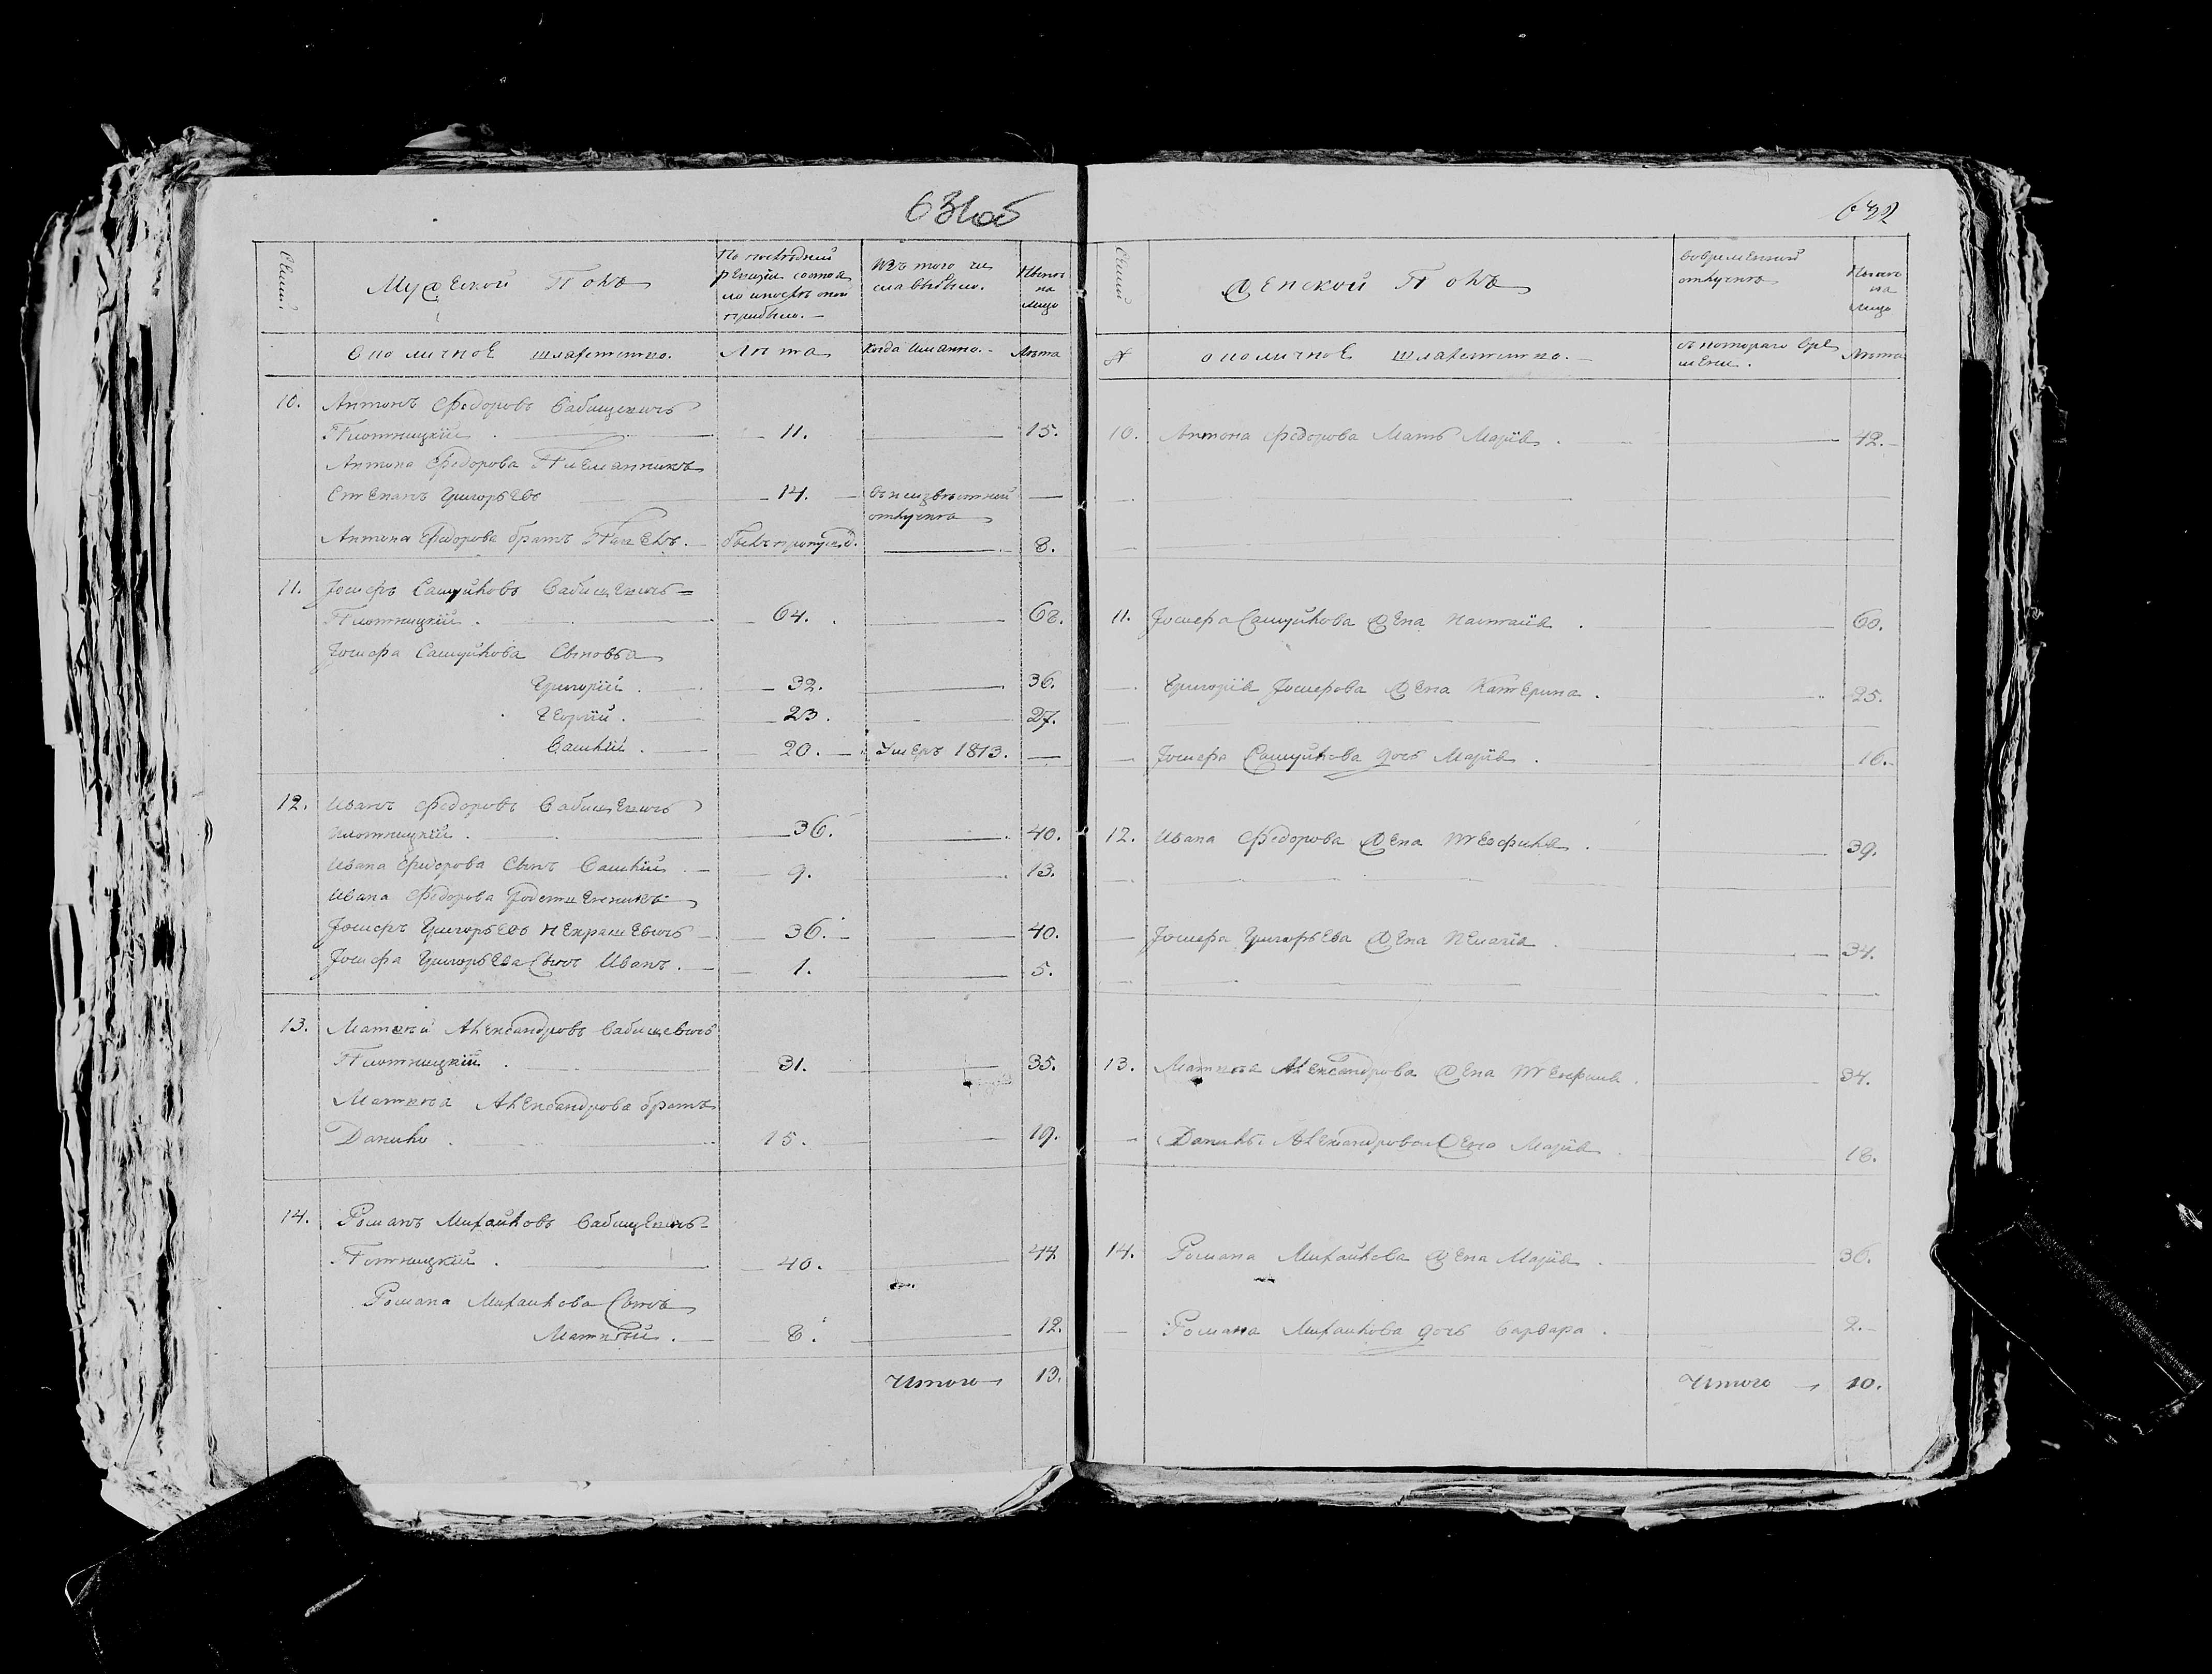 631 об
Семьи
Мужеской Полъ
По последней
ревизiи состоя
ло и после оной
прибыло.
Изъ того чи
сла выбыло.
Ныне
на
лицо
Околичное шляхетство.
Лета
Когда именно.
Лета
10.
Антонъ Федоровъ Савищевичъ
Плотницкiй
11.
15.
Антона Федорова Племянникъ
Степанъ Григорьевъ
14.
въ неизвестной
отлучке
Антона Федорова братъ Павелъ.
былъ пропущ.
8.
11.
Iосифъ Самуйловъ Савищевичъ
Плотницкiй
64.
68.
Iосифа Самуйлова Сыновья
Григорiй
32.
36.
Георгiй
23.
27.
Василiй
20.
Умеръ 1813.
12.
Иванъ Федоровъ Савищевичъ
Плотницкiй
36.
40.
Ивана Федорова Сынъ Василiй
9.
13.
Ивана Федорова Родственникъ
Iосифъ Григорьевъ Некрашевичъ
36.
40.
Iосифа Григорьева Сынъ Иванъ.
1.
5.
13.
Матвей Александровъ Савищевичъ
Плотницкiй
31.
35.
Матвея Александрова братъ
Данило
15.
19.
14.
Романъ Михайловъ Савищевичъ
Плотницкiй
40.
44
Романа Михайлова Сынъ
Матвей
8.
12.
Итого
13.
632
Семьи
Женской Полъ
Во временной
отлучке
Ныне
на
лицо
№
Околичное шляхетство.
съ котораго вре
мени.
Лета
10.
Антона Федорова Мать Марiя
42.
11.
Iосифа Самуйлова Жена Наталiя
60.
Григорiя Iосифова Жена Катерина
25.
Iосифа Самуйлова дочь Марiя
16.
12.
Ивана Федорова Жена Теофила
39.
Iосифа Григорьева Жена Пелагiя
34.
13.
Матвея Александрова Жена Теофила
34.
Данилы Александрова Жена Марiя
18.
14.
Романа Михайлова Жена Марiя
36.
Романа Михайлова дочь Варвара
2.
Итого
10.